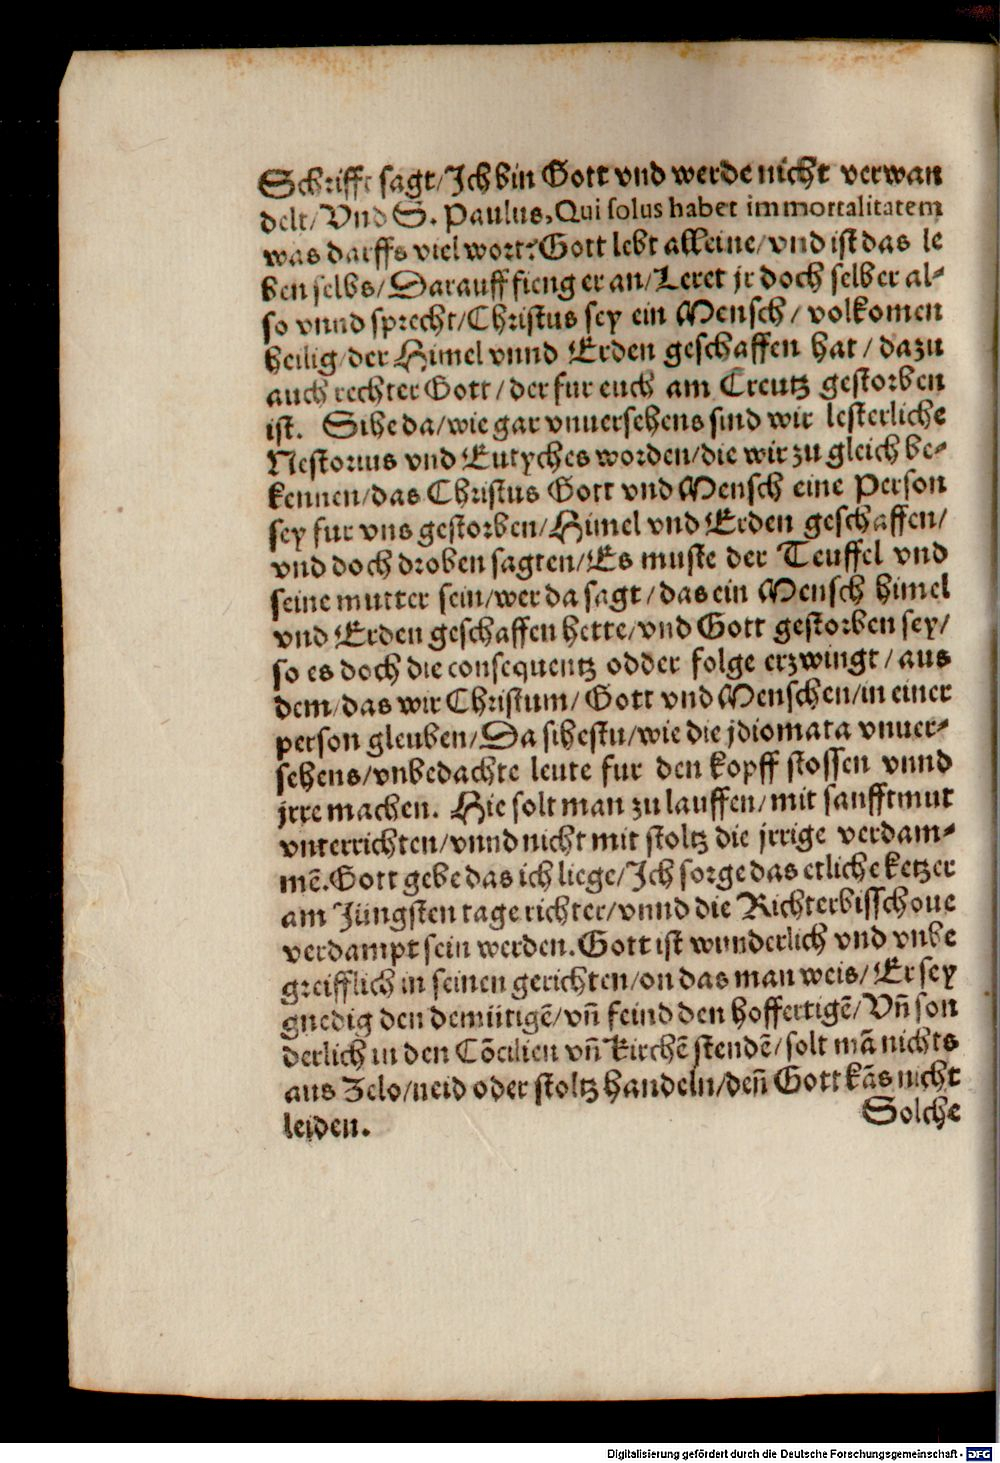 Schrifft sagt/Ich bin Gott vnd werde nicht verwan
delt/Vnd S. Paulus, Qui solus habet immortalitatem
was darffs viel wort? Gott lebt alleine/vnd ist das le
ben selbs/Darauff fieng er an/Leret jr doch selber al-
so vnnd sprecht/Christus sey ein Mensch/ volkomen
heilig/der Himel vnnd Erden geschaffen hat / dazu
auch rechter Gott/der fur euch am Creutz gestorben
ist. Sihe da/wie gar vnuersehens sind wir lesterliche
Nestorius vnd Eutyches worden/die wir zu gleich be-
kennen/das Christus Gott vnd Mensch eine Person
sey fur vns gestorben/Himel vnd Erden geschaffen/
vnd doch droben sagten/Es muste der Teuffel vnd
seine mutter sein/wer da sagt/das ein Mensch himel
vnd Erden geschaffen hette/vnd Gott gestorben sey/
so es doch die consequentz odder folge erzwingt/aus
dem/das wir Christum/ Gott vnd Menschen/in einer
person gleuben/Da sihestu/wie die jdiomata vnuer-
sehens/vnbedachte leute fur den kopff stossen vnnd
jrre machen. Hie solt man zu lauffen/mit sanfftmut
vnterrichten/vnnd nicht mit stoltz die jrrige verdam-
mē. Gott gebe das ich liege/Ich sorge das etliche ketzer
am Jüngsten tage richter/vnnd die Richterbisschoue
verdampt sein werden. Gott ist wunderlich vnd vnbe
greifflich in seinen gerichten/on das man weis/Er sey
gnedig den demütigē/vn̄ feind den hoffertigē/Vn̄ son
derlich in den Cōcilien vn̄ Kirchē stendē/solt mā nichts
aus Zelo/neid oder stoltz handeln/den̄ Gott kās nicht
leiden.
Solche
Digitalisierung gefördert durch die Deutsche Forschungsgemeinschaft - DFG